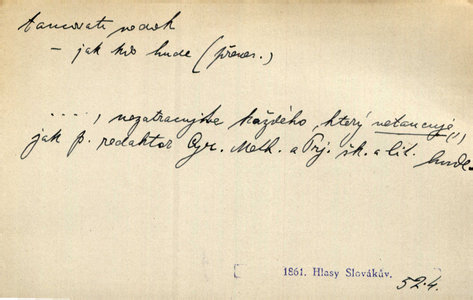 tancovati nedok
– jak kdo hude (přenes.)
...., nezatracujtse každého, který netancuje,
jak p. redaktor Cyr. Meth. a Prj. šk. a lit. hude.
1861. Hlasy Slovákův.
52.4.